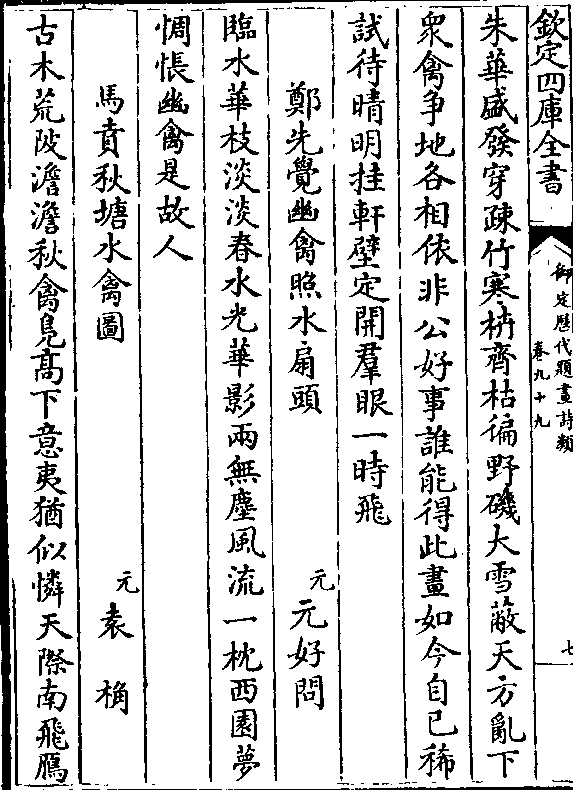 欽定四庫全書
御定歷代題畫詩類
卷九十九
七
朱華盛發穿疎竹寒枿齊枯徧野磯大雪蔽天方亂下
衆禽争地各相依非公好事誰能得此畫如今自已稀
試待晴明挂軒壁定開羣眼一時飛
鄭先覺幽禽照水扇頭 元 元好問
臨水華枝淡淡春水光華影兩無塵風流一枕西園夢
惆悵幽禽是故人
馬賁秋塘水禽圖 元 袁桷
古木荒陂澹澹秋禽鳧高下意夷猶似憐天際南飛鴈